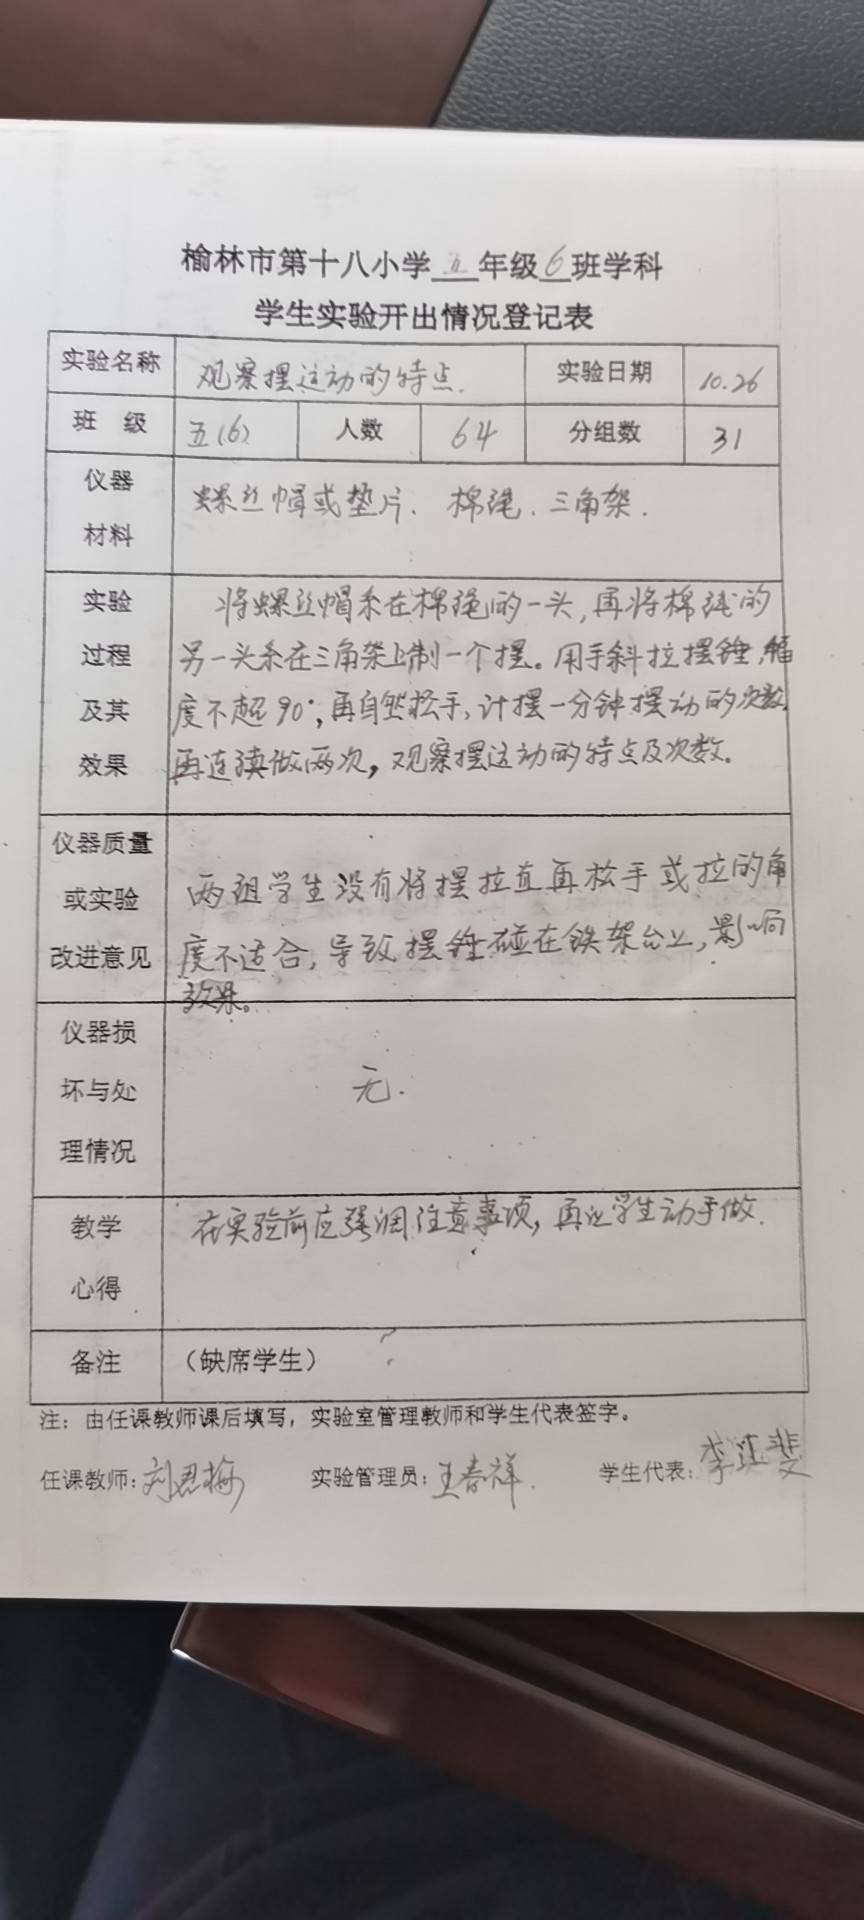 榆林市第十八小学五年级6班学科
学生实验开出情况登记表
实验名称 观察摆运动的特点. 实验日期 10.26
班 级 五(6) 人数 64 分组数 31
仪器
材料
螺丝帽或垫片、棉绳、三角架.
实验
过程
及其
效果
将螺丝帽系在棉绳的一头,再将棉绳的
另一头系在三角架上制一个摆。用手斜拉摆锤,幅
度不超90°,再自然松手,计摆一分钟摆动的次数,
再连续做两次,观察摆运动的特点及次数。
仪器质量
或实验
改进意见
两组学生没有将摆拉直再松手或拉的角
度不适合,导致摆锤碰在铁架台上,影响
效果。
仪器损
坏与处
理情况
无.
教学
心得
在实验前应强调注意事项,再让学生动手做.
备注 (缺席学生)
注:由任课教师课后填写,实验室管理教师和学生代表签字。
任课教师:刘君梅 实验管理员:王春祥. 学生代表:李江斐